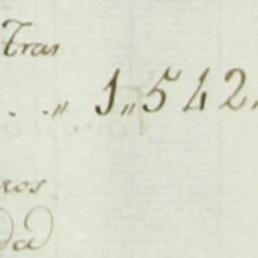 Tras
. . „ 1„542„
ros
da